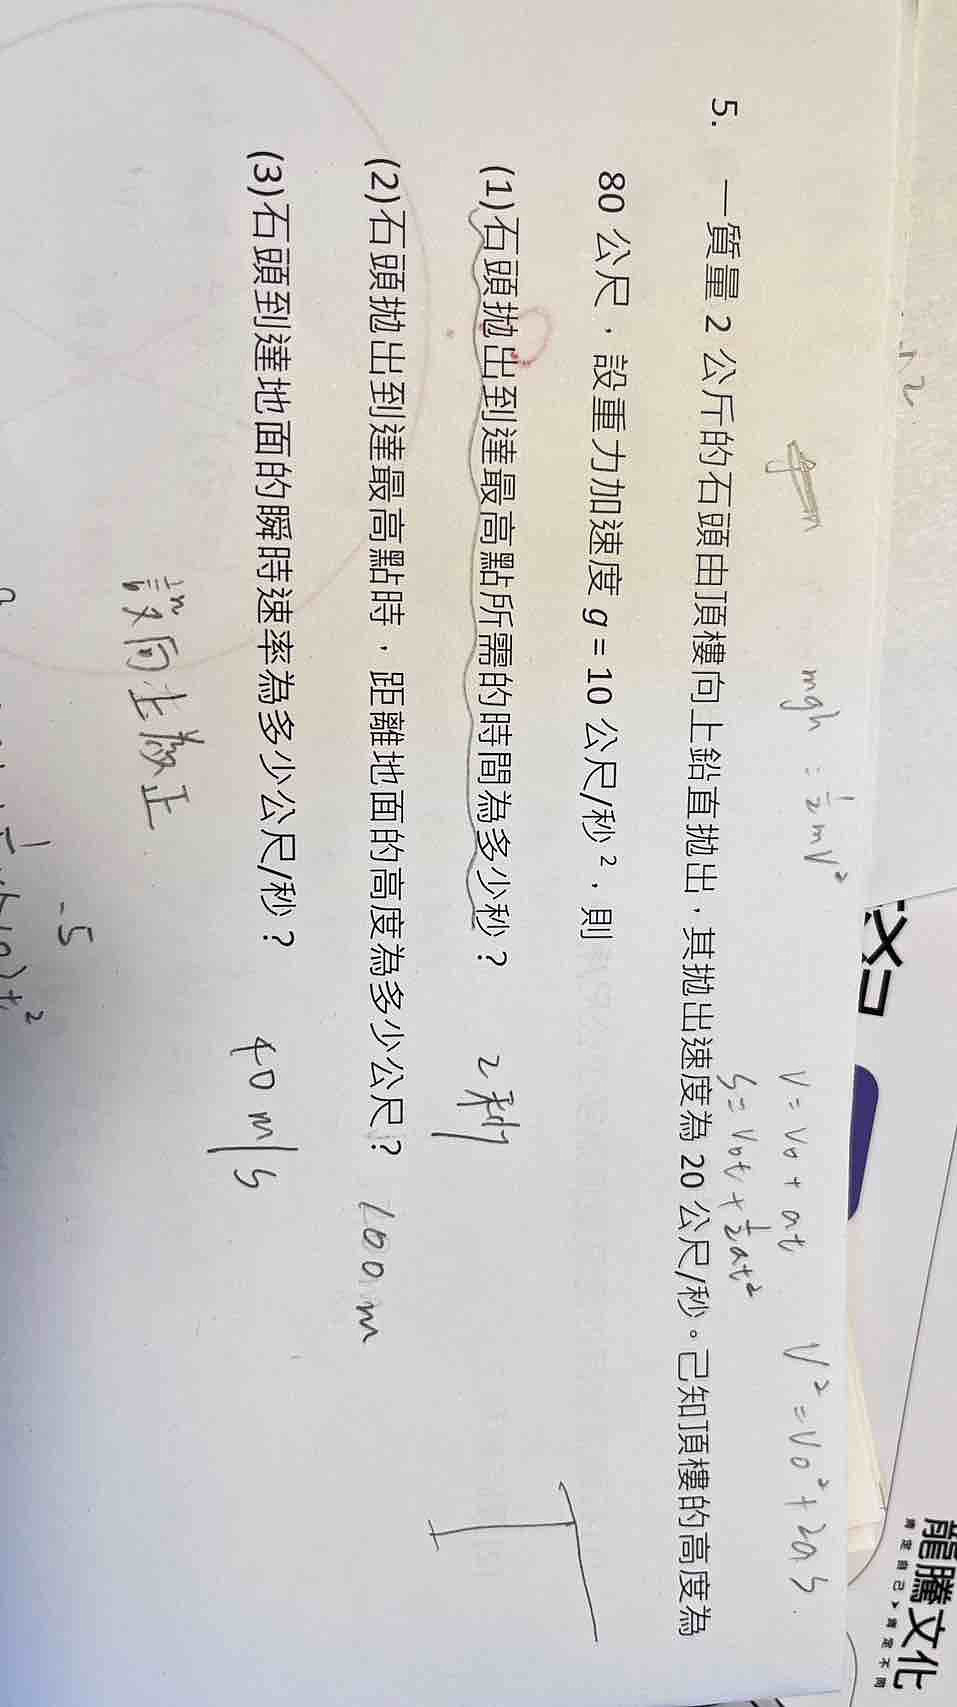 mgh = ½mv²
V = V₀ + at
V² = V₀² + 2as
S = V₀t + ½at²
5. 一質量 2 公斤的石頭由頂樓向上鉛直拋出，其拋出速度為 20 公尺/秒。已知頂樓的高度為
80 公尺，設重力加速度 g = 10 公尺/秒²，則
(1)石頭拋出到達最高點所需的時間為多少秒？ 2秒
(2)石頭拋出到達最高點時，距離地面的高度為多少公尺？ 100m
(3)石頭到達地面的瞬時速率為多少公尺/秒？ 40 m/s
設向上為正
-5
龍騰文化
肯定自己 肯定不同